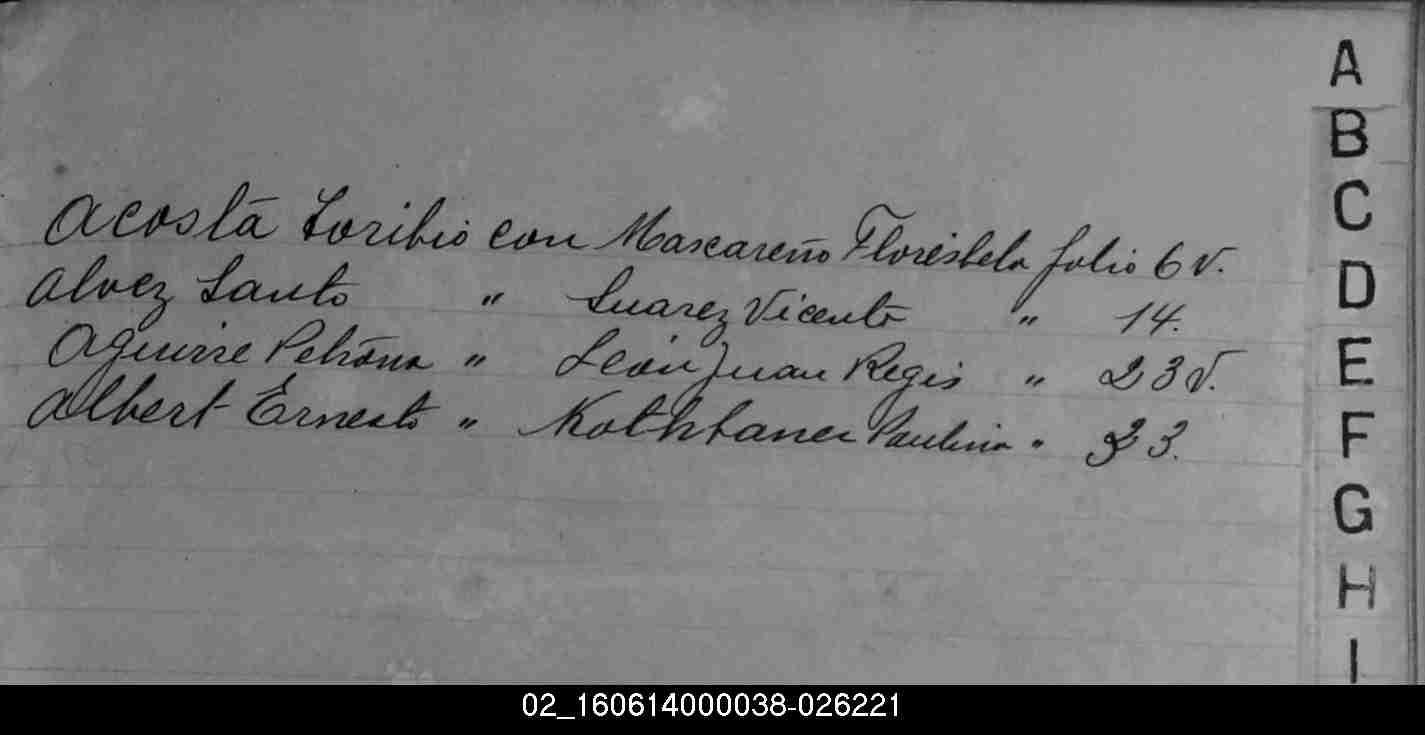 Acosta Toribio con Mascareño Floristela folio 6 v.
Alvez Santo " Suarez Vicenta " 14.
Aguirre Petrona " León Juan Regis " 23 v.
Albert Ernesto " Paulina " 33.
A
B
C
D
E
F
G
H
I
02_160614000038-026221